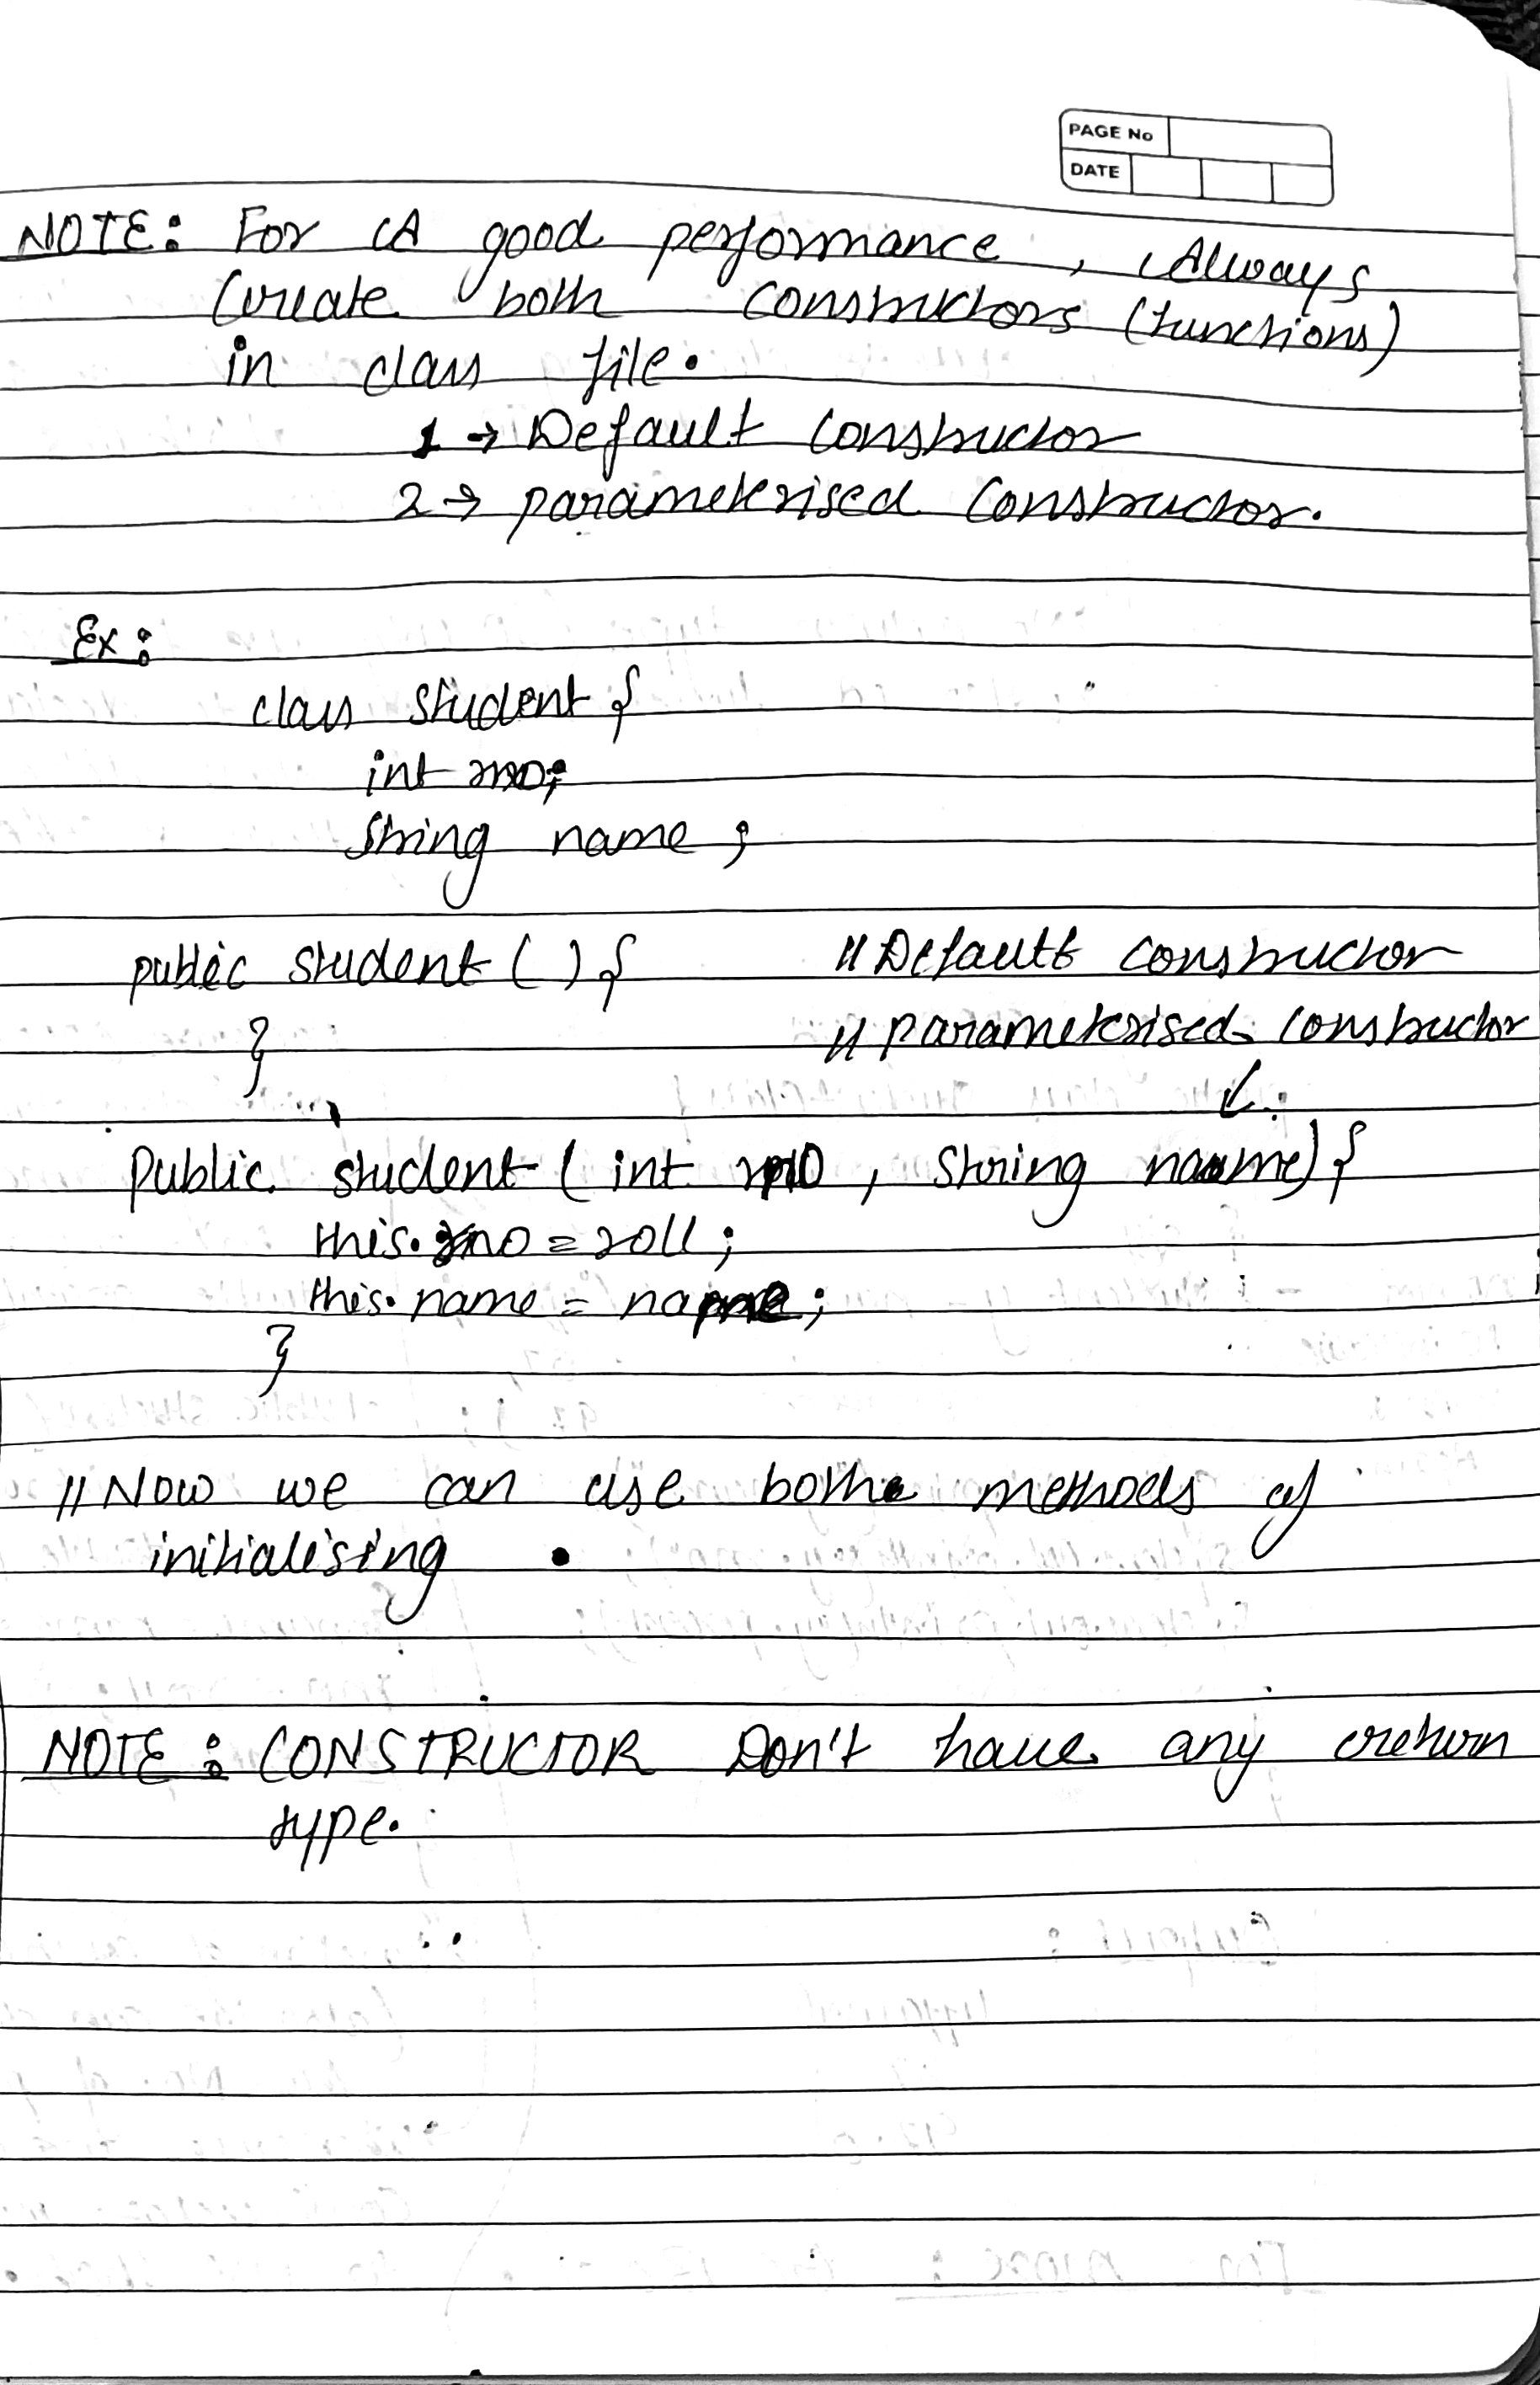 PAGE No
DATE
NOTE: For A good performance, Always
Create both constructors (functions)
in class file.
1 → Default constructor
2 → parameterised constructor.
Ex:
class student {
int rno;
String name ;
public student ( ) { // Default constructor
} // parameterised constructor
↙
Public student ( int rno , String name) {
this.rno = roll ;
this. name = name ;
}
// Now we can use both methods of
initialising .
NOTE : CONSTRUCTOR Don't have any return
type.